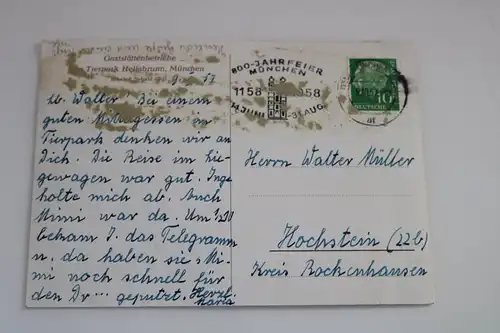 Gaststättenbetriebe
Tierpark Hellabrunn, München
lb. Walter Bei einem
guten Mittagessen im
Tierpark denken wir an
Dich. Die Reise im Lie-
gewagen war gut. Inge
holte mich ab. Auch
Mimi war da. Um
bekam I. das Telegramm
u. da haben sie Mi-
mi noch schnell für
den Dr... geputzt. Herzl.
Maria
800-JAHRFEIER
MÜNCHEN
1158 1958
14.JUNI -31.AUG.
10
DEUTSCHE
Herrn Walter Müller
Hochstein (22b)
Kreis Rockenhausen